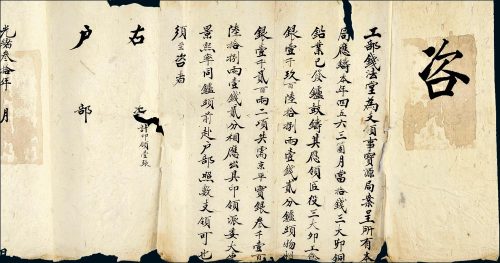 咨
工部錢法堂為支領事寶源局案呈所有本
局應鑄本年四五六三箇月當拾錢三大卯銅
鉛業已發鑪鼓鑄其應領匠役三大卯工
銀壹千玖百陸拾捌兩壹錢貳分鑪頭物料
銀壹千貳百兩二項共需京平實銀叁千壹百
陸拾捌兩壹錢貳分相應出具印領派委大使
景熙率同鑪頭前赴戶部照數支領可也
須至咨者
計印領壹張
右
戶 部
光緒叁拾年 月